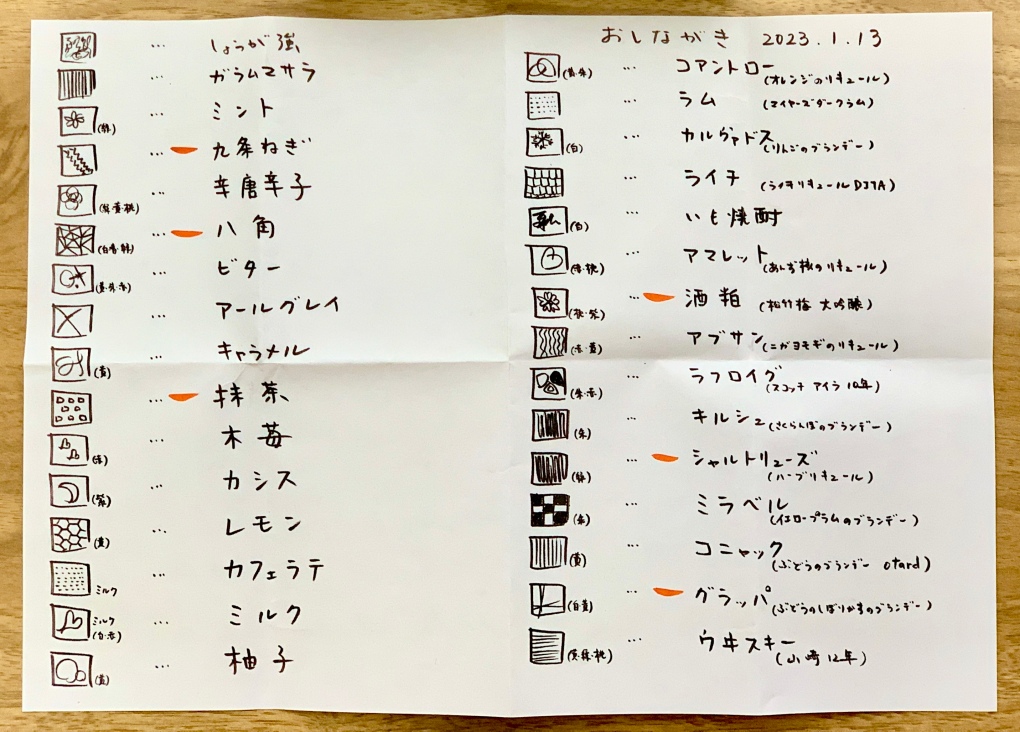 おしながき 2023.1.13
… コアントロー (オレンジのリキュール)
… ラム (マイヤーズダークラム)
(白) … カルヴァドス (りんごのブランデー)
… ライチ (ライチリキュール DITA)
(白) … いも焼酎
(赤・桃) … アマレット (あんず核のリキュール)
(桃・紫) … 酒粕 (松竹梅 大吟醸)
(赤・黄) … アブサン (ニガヨモギのリキュール)
(朱・赤) … ラフロイグ (スコッチ アイラ 10年)
(朱) … キルシュ (さくらんぼのブランデー)
(緑) … シャルトリューズ (ハーブリキュール)
(朱) … ミラベル (イエロープラムのブランデー)
(黄) … コニャック (ぶどうのブランデー otard)
(白黄) … グラッパ (ぶどうのしぼりかすのブランデー)
… ウヰスキー (山崎12年)
… しょうが強
… ガラムマサラ
(緑) … ミント
… 九条ねぎ
(緑黄桃) … 辛唐辛子
… 八角
(黄・朱・赤) … ビター
… アールグレイ
(黄) … キャラメル
… 抹茶
(赤) … 木苺
(紫) … カシス
(黄) … レモン
ミルク … カフェラテ
ミルク (白・赤) … ミルク
(黄) … 柚子